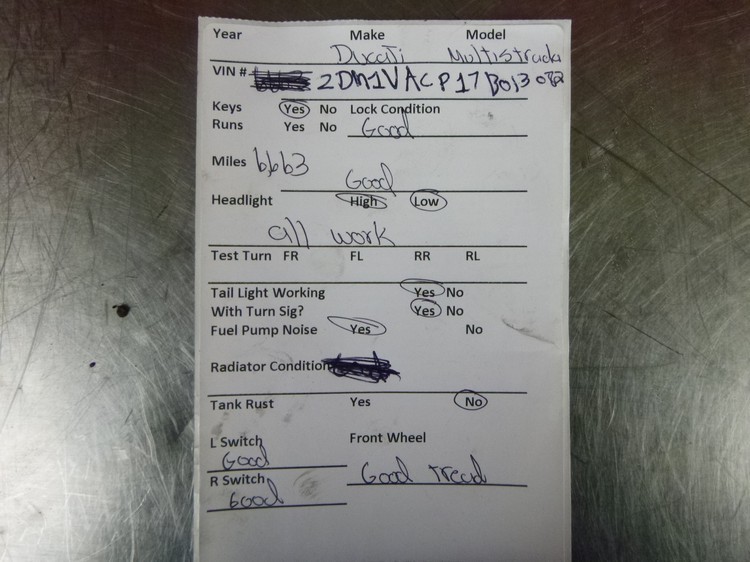 Year Make Model
Ducati Multistrada
VIN # 2DM1VACP17B013082
Keys Yes No Lock Condition
Runs Yes No Good
Miles 6663
Good
Headlight High Low
all work
Test Turn FR FL RR RL
Tail Light Working Yes No
With Turn Sig? Yes No
Fuel Pump Noise Yes No
Radiator Condition
Tank Rust Yes No
L Switch Front Wheel
Good
R Switch Good Tread
Good